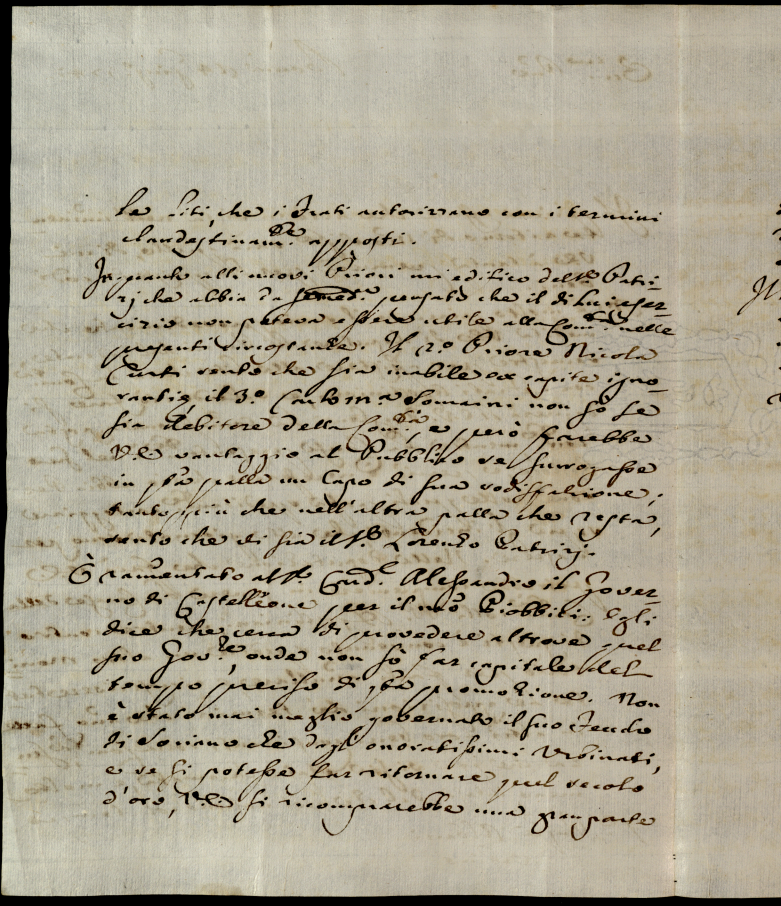 le liti, che i Frati autorizzano con i termini
clandestinam.te apposti.
In quanto alli nuovi Priori mi edifico del S.r Patri-
zj che abbia da pensato che il di Lui eser-
cizio non poteva essere utile alla Com.tà nelle
presenti circostanze. Il 2.o Priore Nicola
Curti sento che sia inabile ex capite igno-
rantiæ, il 3.o Carlo M.a Somaini non sò se
sia debitore della Com.tà, e però sarebbe
vantaggio al Pubblico se surrogasse
in palla un Capo di sua sodisfazione;
tanto più che nell'altra palla che resta,
sento che vi sia il S.r Lorenzo Patrizj.
È ramentato al S.r Card.le Alessandro il Gover-
no di Castelleone per il mio Piobbici: Egli
dice che cerca di provedere altrove quel
suo Gov.re, onde non sò far capitale del
tempo preciso di promozione. Non
è stato mai meglio governato il suo Feudo
di Soriano che dagl'onoratissimi Urbinati,
e se si potesse far ritornare quel secolo
d'oro, si ricomprarebbe una gran parte